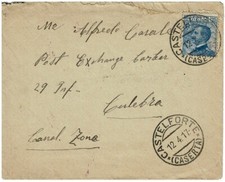 Mr Alfredo Casale
Post Exchange barber
29 Inf.
Culebra
Canal Zone
CASTELFORTE
(CASERTA)
CASTELFORTE
12.4.17
(CASERTA)